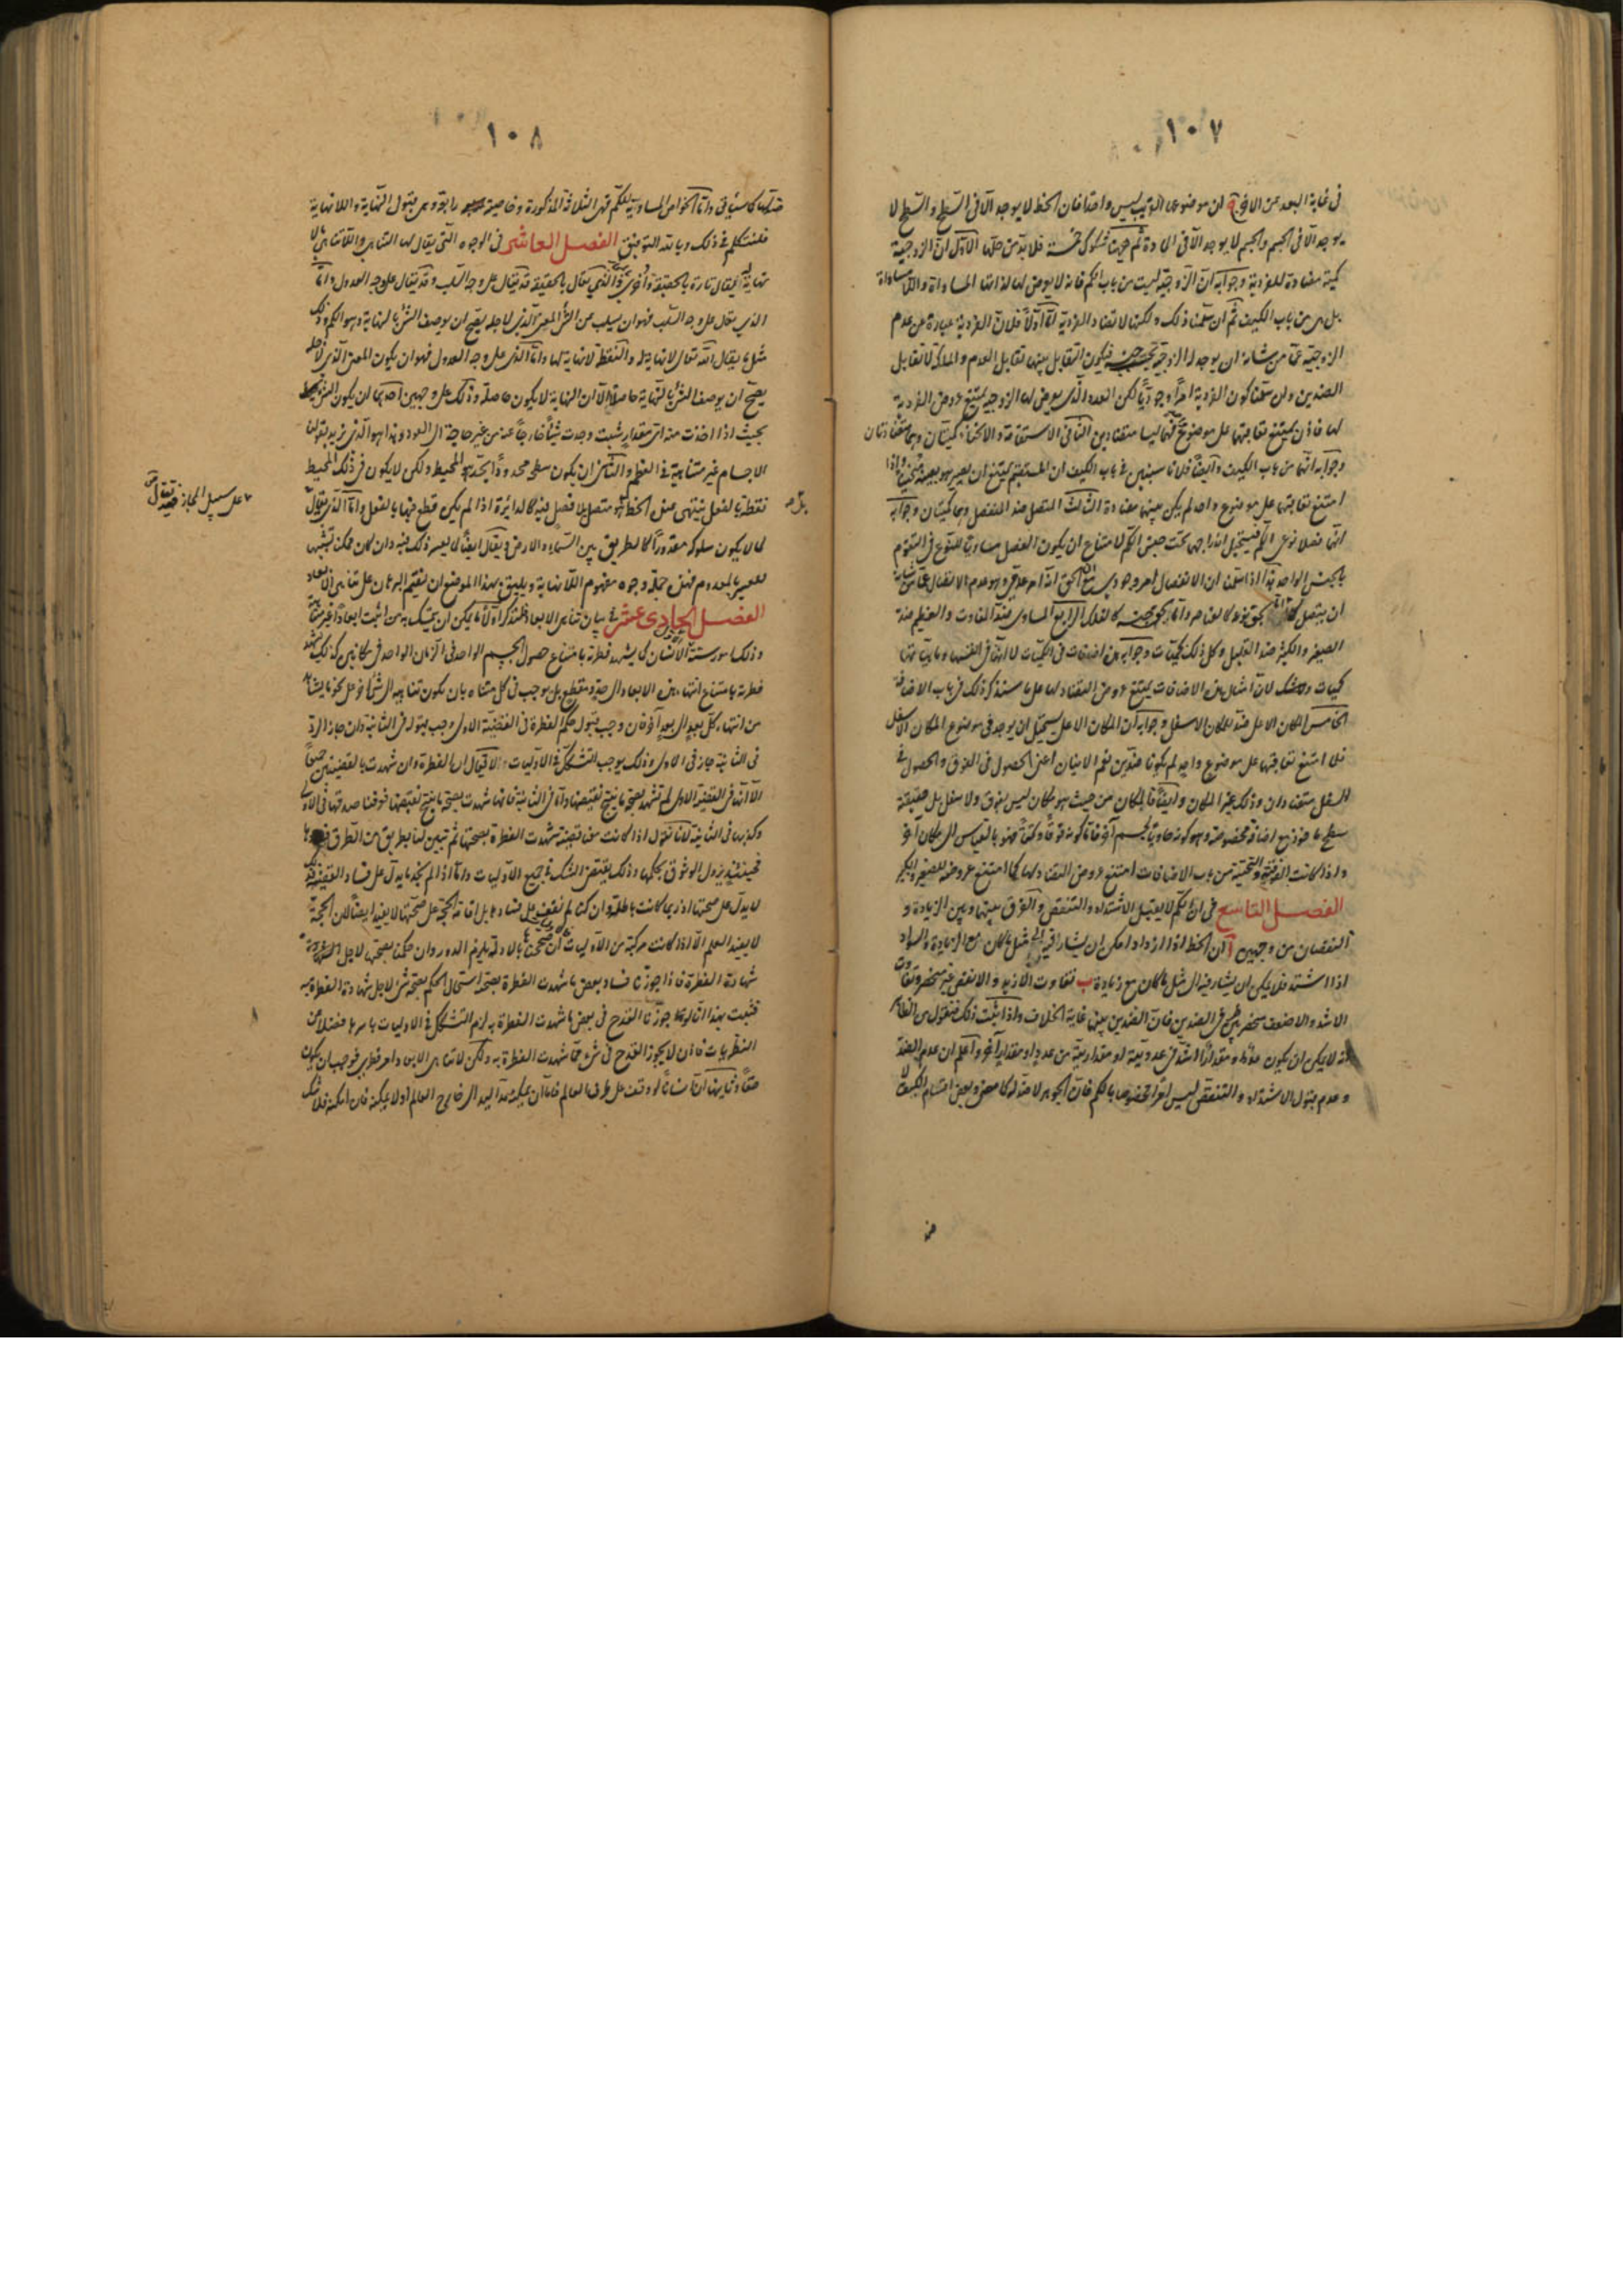 ١٠٧
في غاية البعد عن الاخر ان موضوعى القريب ليس واحدا فان الخط لا يوجد الا في السطح والسطح لا
يوجد الا في الجسم والجسم لا يوجد الا في المادة ثم ههنا شكوك خمسة فلا بد من حلها الاول ان الزوجية
كمية مضادة للفردية وجوابه ان الزوجية ليست من باب الكم فانه لا يعرض لها لذاتها المساواة واللامساواة
بل هى من باب الكيف ثم ان سلمنا ذلك ولكنها لا تضاد الفردية اما اولا فلان الفردية عبارة عن عدم
الزوجية عما من شانه ان يوجد له الزوجية فيكون التقابل بينهما تقابل العدم والملكة لا تقابل
الضدين وان سلمنا كون الفردية امرا وجوديا لكن العدد الذى يعرض له الزوجية يمتنع عروض الفردية
لها فاذن يمتنع تعاقبهما على موضوع فهما ليسا متضادين الثاني الاستقامة والانحناء كميتان وهما متضادتان
وجوابه انهما من باب الكيف وايضا فلانا سنبين في باب الكيف ان المستقيم يمتنع ان يصير هو بعينه منحنيا واذا
امتنع تعاقبهما على موضوع واحد لم يكن بينهما مضادة الثالث المتصل ضد المنفصل وهما كميتان وجوابه
انهما فصلا نوعى الكم فيستحيل اندراجهما تحت جنس الكم لامتناع ان يكون الفصل مساويا للنوع في التقوم
بالجنس الواحد هذا اذا سلمنا ان الانفصال امر وجودى مع ان الحق انه امر عدمى وهو عدم الاتصال عما من شانه
ان يتصل بحق نوعه كالعناصر واما بحق جنسه كالفلك الرابع المساوى ضد التفاوت والعظيم ضد
الصغير والكثير ضد القليل وكل ذلك كميات وجوابه ان هذه اضافات في الكميات لا انها في انفسها وماهياتها
كميات ولا شك لان امثال هذه الاضافات يمتنع عروض التضاد لها على ما سنذكر ذلك في باب الاضافة
الخامس المكان الاعلى ضد للمكان الاسفل وجوابه ان المكان الاعلى يستحيل ان يوجد في موضوع المكان الاسفل
فلما امتنع تعاقبهما على موضوع واحد لم يكونا ضدين نعم الاينان اعنى الحصول في الفوق والحصول في
السفل متضادان وذلك غير المكان وايضا فالمكان من حيث هو مكان ليس بفوق ولا سفل بل حقيقته
سطح ماخوذ مع اضافة مخصوصة وهو كونه حاويا لجسم اخر فاما كونه فوقا وتحتا فهو بالقياس الى مكان اخر
واذا كانت الفوقية والتحتية من باب الاضافات امتنع عروض التضاد لها كما امتنع عروضه للصغير والكبير
الفصل التاسع في ان الكم لا يقبل الاشتداد والتنقص والفرق بينهما وبين الزيادة و
النقصان من وجهين ا ان الخط اذا ازداد امكن ان يشار فيه الى مثل ما كان مع الزيادة والسواد
اذا اشتد فلا يمكن ان يشار فيه الى مثل ما كان مع زيادة ب تفاوت الازيد والانقص غير منحصر وتفاوت
الاشد والاضعف منحصر بين طرفى الضدين فان الضدين بينهما غاية الخلاف واذا ثبت ذلك فنقول من الظاهر
انه لا يمكن ان يكون عددا ومقدارا اشد في عدديته او مقداريته من عدد او مقدار اخر واعلم ان عدم الضد
وعدم قبول الاشتداد والتنقص ليس امرا مختصا بالكم فان الجوهر لا ضد له كما مضى وبعض اقسام الكيف لا
١٠٨
ضد لها كما سياتى واما الخواص المساوية للكم فهى الثلاثة المذكورة وخاصية رابعة وهى قبول النهاية واللانهاية
فلنتكلم في ذلك وبالله التوفيق الفصل العاشر في الوجوه التى يقال لها التناهى واللاتناهى لا
نهاية له يقال تارة بالحقيقة واخرى والذى يقال بالحقيقة قد يقال على وجه السلب وقد يقال على وجه العدول واما
الذى يقال على وجه السلب فهو ان يسلب عن الشئ المعنى الذى لاجله يصح ان يوصف الشئ بالنهاية وهو الكم وذلك
مثل ما يقال الله تعالى لا نهاية له والنقطة لا نهاية لها واما الذى على وجه العدول فهو ان يكون المعنى الذى لاجله
يصح ان يوصف الشئ بالنهاية حاصلا الا ان النهاية لا يكون حاصلة وذلك على وجهين احدهما ان يكون الشئ
بحيث اذا اخذت منه اى مقدار شئت وجدت شيئا خارجا عنه من غير حاجة الى العود وهذا هو الذى نريد بقولنا
الاجسام غير متناهية في العظم والثانى ان يكون سطح محدودا يحده المحيط ولكن لا يكون في ذلك المحيط
نقطة بالفعل ينتهى عندها الخط بل هو متصل لا فصل فيه كالدائرة اذا لم يكن قطع فيها بالفعل واما الذى يقال
على سبيل المجاز فقد يقال
لما لا يكون سلوكه مقدورا كالطريق بين السماء والارض وقد يقال ايضا لما يعسر ذلك فيه وان كان ممكنا تشبيها
للعسير بالمعدوم فهذه جملة وجوه مفهوم اللانهاية ويليق بهذا الموضع ان نقيم البرهان على تناهى الابعاد
الفصل الحادى عشر في بيان تناهى الابعاد فلنذكر اولا ما يمكن ان يتمسك به من اثبت ابعادا غير متناهية
وذلك امور ستة الاول الانسان كما يشهد فطرته بامتناع حصول الجسم الواحد في الزمان الواحد في مكانين كذلك يشهد
فطرته بامتناع انتهاء هذه الابعاد الى حد ومقطع بل يوجب في كل متناه بان يكون تناهيه الى شئ اخر على نحو ما يشاهد
من انتهاء كل بعد الى بعد اخر فان وجب قبول حكم الفطرة في القضية الاولى وجب قبوله في الثانية وان جاز الرد
في الثانية جاز في الاولى وذلك يوجب التشكك في الاوليات ولا يقال ان الفطرة وان شهدت بالقضيتين جميعا
الا انه في القضية الاولى لم تشهد بصحة ما ينتج نقيضها واما في الثانية فانها شهدت بصحة ما ينتج نقيضها فعرفنا صدقها في الاولى
وكذبها في الثانية لانا نقول اذا كانت قضية شهدت الفطرة بصحتها ثم تبين لنا بطريق من الطرق فسادها
فحينئذ يزول الوثوق بحكمها وذلك يقتضى الشك في جميع الاوليات واما اذا لم نجد ما يدل على فساد القضية فذلك
لا يدل على صحتها اذ ربما كانت باطلة وان كنا لم نقف على فسادها بل اقامة الحجة على صحتها لا يفيد ايضا لان الحجة
لا يفيد العلم الا اذا كانت مركبة من الاوليات فان صححنا الاوليات بالادلة يلزم الدور وان حكمنا بصحتها لاجل
شهادة الفطرة فاذا جوزنا فساد بعض ما شهدت الفطرة بصحته استحال الحكم بصحة شئ لاجل شهادة الفطرة به
فثبت بهذا انا لو جوزنا القدح في بعض ما شهدت الفطرة به لزم التشكك في الاوليات باسرها فضلا عن
النظريات فاذن لا يجوز القدح في شئ مما شهدت الفطرة به ولكن لا تناهى الابعاد امر فطرى فوجب ان يكون
حقا وثانيها ان انسانا لو وقف على طرف العالم فاما ان يمكنه مد اليد الى خارج العالم او لا يمكنه فان امكنه فلا شك